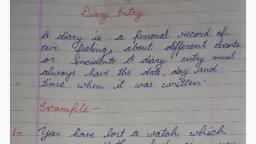 Diary Entry
A diary is a personal record of
our feelings about different events
or incidents A diary entry must
always have the date, day and
time when it was written.
Example -
1- You have lost a watch which